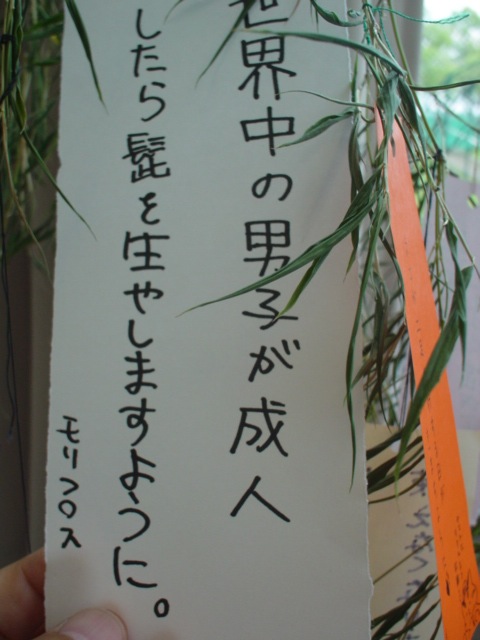 世界中の男子が成人
したら髭を生やしますように。
モリコロス